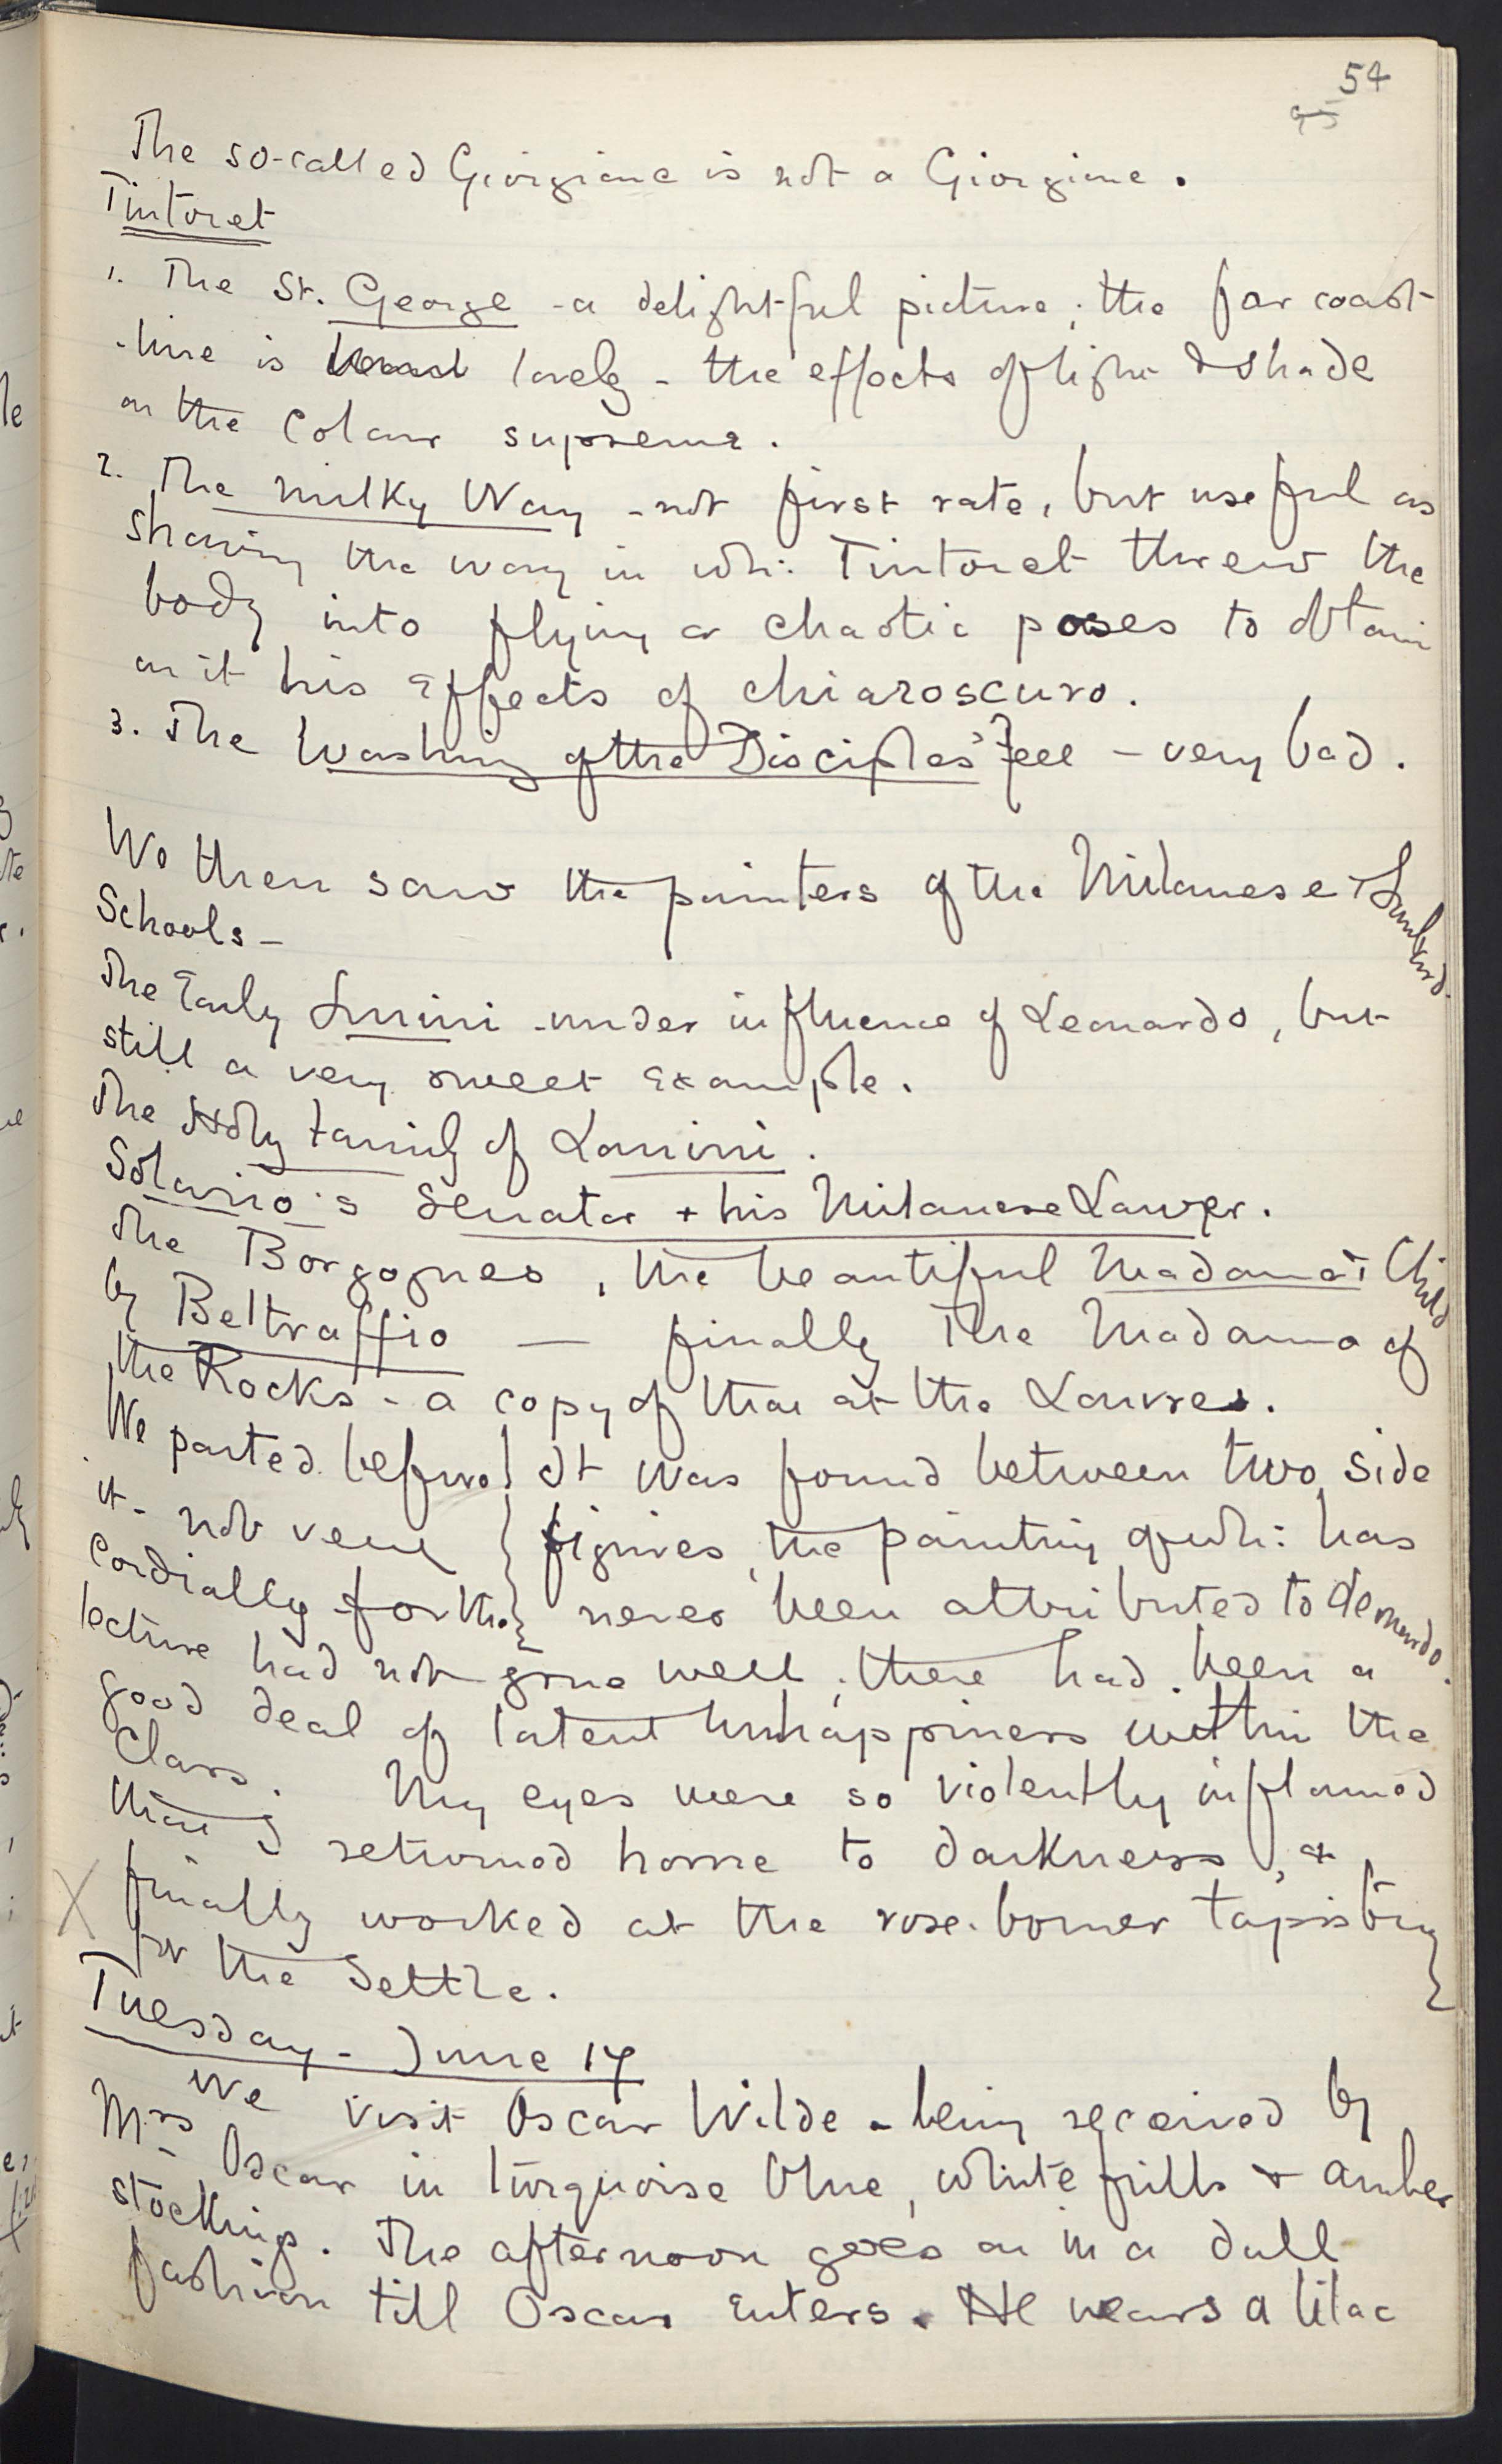 54
The so-called Giorgione is not a Giorgione.
Tintoret
1. The St. George - a delightful picture; the far coast
-line is lovely - the effects of light & shade
on the colour supreme.
2. The Milky Way - not first rate, but useful as
showing the way in wh: Tintoret threw the
body into flying or chaotic poses to obtain
on it his effects of chiaroscuro.
3. The Washing of the Disciples' Feet - very bad.
We then saw the painters of the Milanese & Lombard
Schools -
The Early Luini - under influence of Leonardo, but
still a very sweet example.
The Holy Family of Lanini.
Solario's Senator + his Milanese Lawyer.
The Borgognes, the beautiful Madonna & Child
by Beltraffio — finally The Madonna of
the Rocks - a copy of that at the Louvre.
We parted before
it - not very
cordially for the
It was found between two side
figures, the painting of wh: has
never been attributed to Leonardo.
lecture had not gone well; there had been a
good deal of latent unhappiness within the
class. My eyes were so violently inflamed
that I returned home to darkness, &
X finally worked at the rose-bower tapistry
for the Settle.
Tuesday - June 17
We visit Oscar Wilde - being received by
Mrs Oscar in turquoise blue, white frills & amber
stockings. The afternoon goes on in a dull
fashion till Oscar enters. He wears a lilac